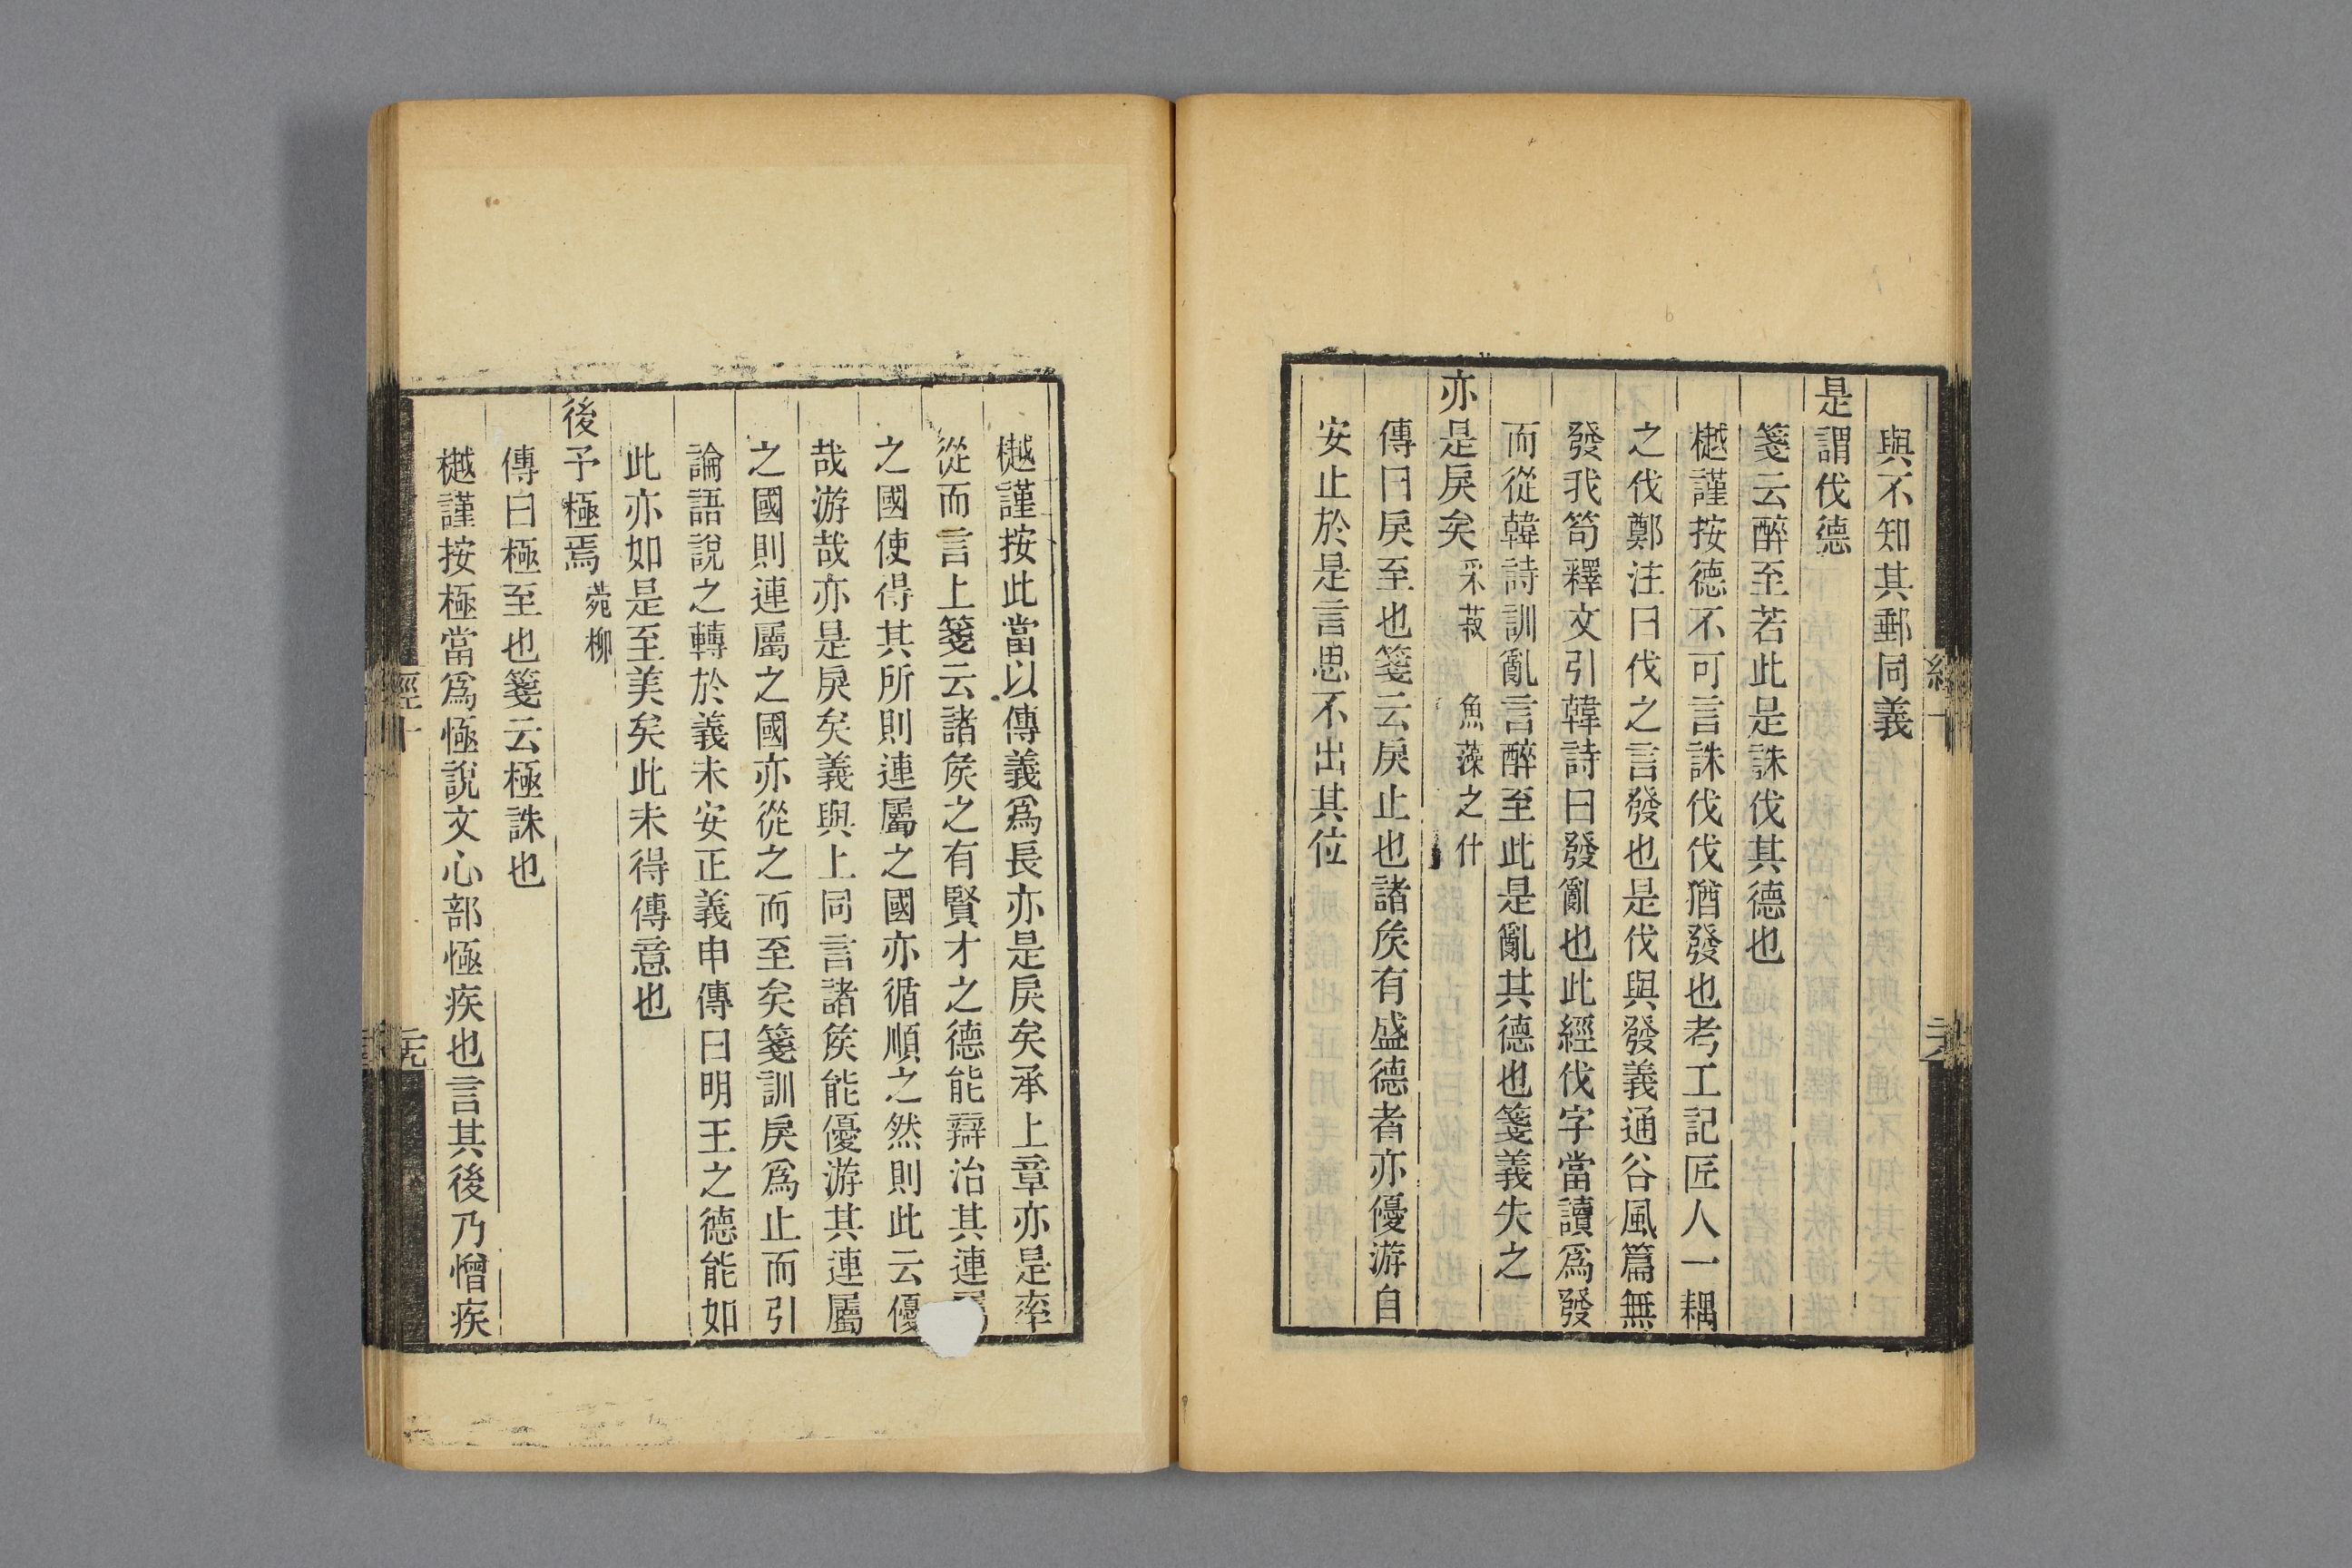 與不知其郵同義
是謂伐德
箋云醉至若此是誅伐其德也
樾謹按德不可言誅伐伐猶發也考工記匠人一耦
之伐鄭注曰伐之言發也是伐與發義通谷風篇無
發我笱釋文引韓詩曰發亂也此經伐字當讀爲發
而從韓詩訓亂言醉至此是亂其德也箋義失之
亦是戾矣 采菽 魚藻之什
傳曰戾至也箋云戾止也諸矦有盛德者亦優游自
安止於是言思不出其位
樾謹按此當以傳義爲長亦是戾矣承上章亦是率
從而言上箋云諸矦之有賢才之德能辯治其連
之國使得其所則連屬之國亦循順之然則此云優
哉游哉亦是戾矣義與上同言諸矦能優游其連屬
之國則連屬之國亦從之而至矣箋訓戾爲止而引
論語說之轉於義未安正義申傳曰明王之德能如
此亦如是至美矣此未得傳意也
後予極焉 菀柳
傳曰極至也箋云極誅也
樾謹按極當爲㥛說文心部㥛疾也言其後乃憎疾
經十
元